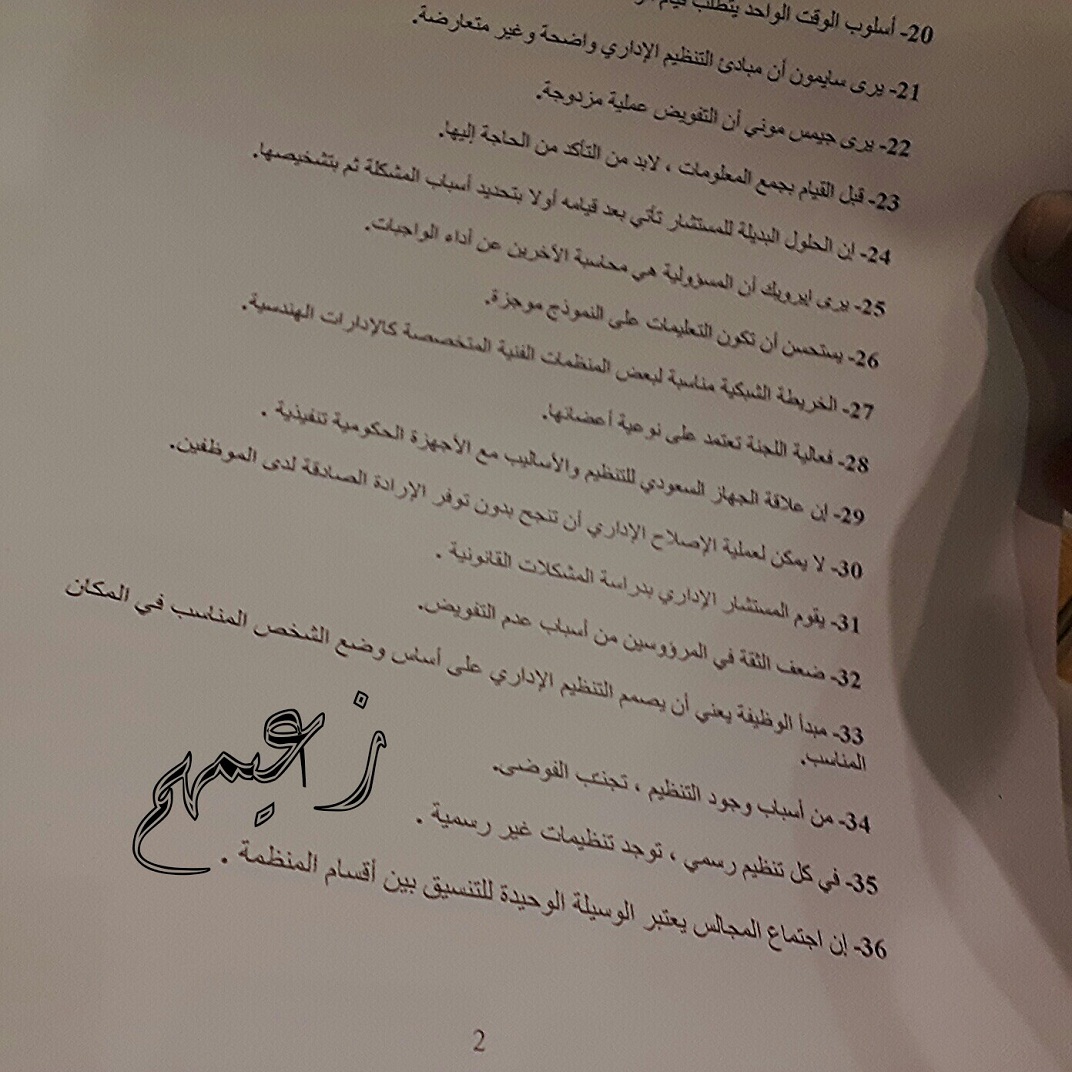 20- أسلوب الوقت الواحد يتطلب قيام
21- يرى سايمون أن مبادئ التنظيم الإداري واضحة وغير متعارضة.
22- يرى جيمس موني أن التفويض عملية مزدوجة.
23- قبل القيام بجمع المعلومات ، لابد من التأكد من الحاجة إليها.
24- إن الحلول البديلة للمستشار تأتي بعد قيامه أولا بتحديد أسباب المشكلة ثم بتشخيصها.
25- يرى ايرويك أن المسؤولية هي محاسبة الآخرين عن أداء الواجبات.
26- يستحسن أن تكون التعليمات على النموذج موجزة.
27- الخريطة الشبكية مناسبة لبعض المنظمات الفنية المتخصصة كالإدارات الهندسية.
28- فعالية اللجنة تعتمد على نوعية أعضائها.
29- إن علاقة الجهاز السعودي للتنظيم والأساليب مع الأجهزة الحكومية تنفيذية .
30- لا يمكن لعملية الإصلاح الإداري أن تنجح بدون توفر الإرادة الصادقة لدى الموظفين.
31- يقوم المستشار الإداري بدراسة المشكلات القانونية .
32- ضعف الثقة في المرؤوسين من أسباب عدم التفويض.
33- مبدأ الوظيفة يعني أن يصمم التنظيم الإداري على أساس وضع الشخص المناسب في المكان
المناسب.
34- من أسباب وجود التنظيم ، تجنب الفوضى.
35- في كل تنظيم رسمي ، توجد تنظيمات غير رسمية .
36- إن اجتماع المجالس يعتبر الوسيلة الوحيدة للتنسيق بين أقسام المنظمة .
زعيمهم
2